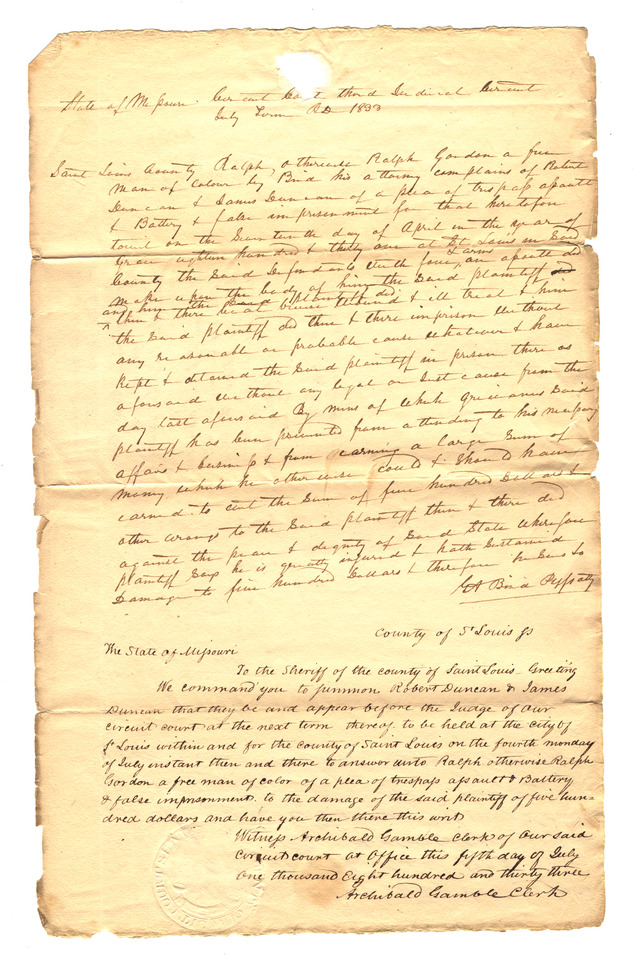 State of Missouri. Circuit Court third Judicial Circuit
July Term AD 1833
Saint Louis County Ralph, otherwise Ralph Gordon a free
Man of Colour by Bird his attorney complains of Robert
Duncan & James Duncan of a plea of trespass assault
& Battery & false imprisonment for that heretofore
towit on the day of April in the year of
Grace eighteen hundred & thirty one at St Louis in Said
County the Said Defendants with force & arms an assault did
Make upon the body of him the Said plaintiff
and him the Said plaintiff did
then & there beat bruise & ill treat & him
the Said plaintiff did then & there imprison without
any reasonable or probable cause whatever & have
Kept & detained the Said plaintiff in prison there as
aforesaid without any legal or Just cause from the
day last aforesaid By means of which grievances Said
plaintiff has been prevented from attending to his necessary
affairs & business & from earning a large Sum of
Money which he otherwise could & Should have
earned to wit the Sum of five hundred Dollars &
other wrongs to the Said plaintiff then & there did
against the peace & dignity of Said State wherefore
plaintiff Says he is greatly injured & hath Sustained
Damage to five hundred Dollars & therefore he Sues &c
Bird Plffs atty
County of St Louis ss
The State of Missouri
To the Sheriff of the county of Saint Louis Greeting
We command you to summon Robert Duncan & James
Duncan that they be and appear before the Judge of our
circuit court at the next term thereof to be held at the city of
St Louis within and for the county of Saint Louis on the fourth monday
of July instant then and there to answer unto Ralph otherwise Ralph
Gordon a free man of color of a plea of trespass assault & Battery
& false imprisonment to the damage of the said plaintiff of five hun-
dred dollars and have you then there this writ
Witness Archibald Gamble clerk of our said
circuit court at office this fifth day of July
one thousand Eight hundred and thirty three
Archibald Gamble Clerk